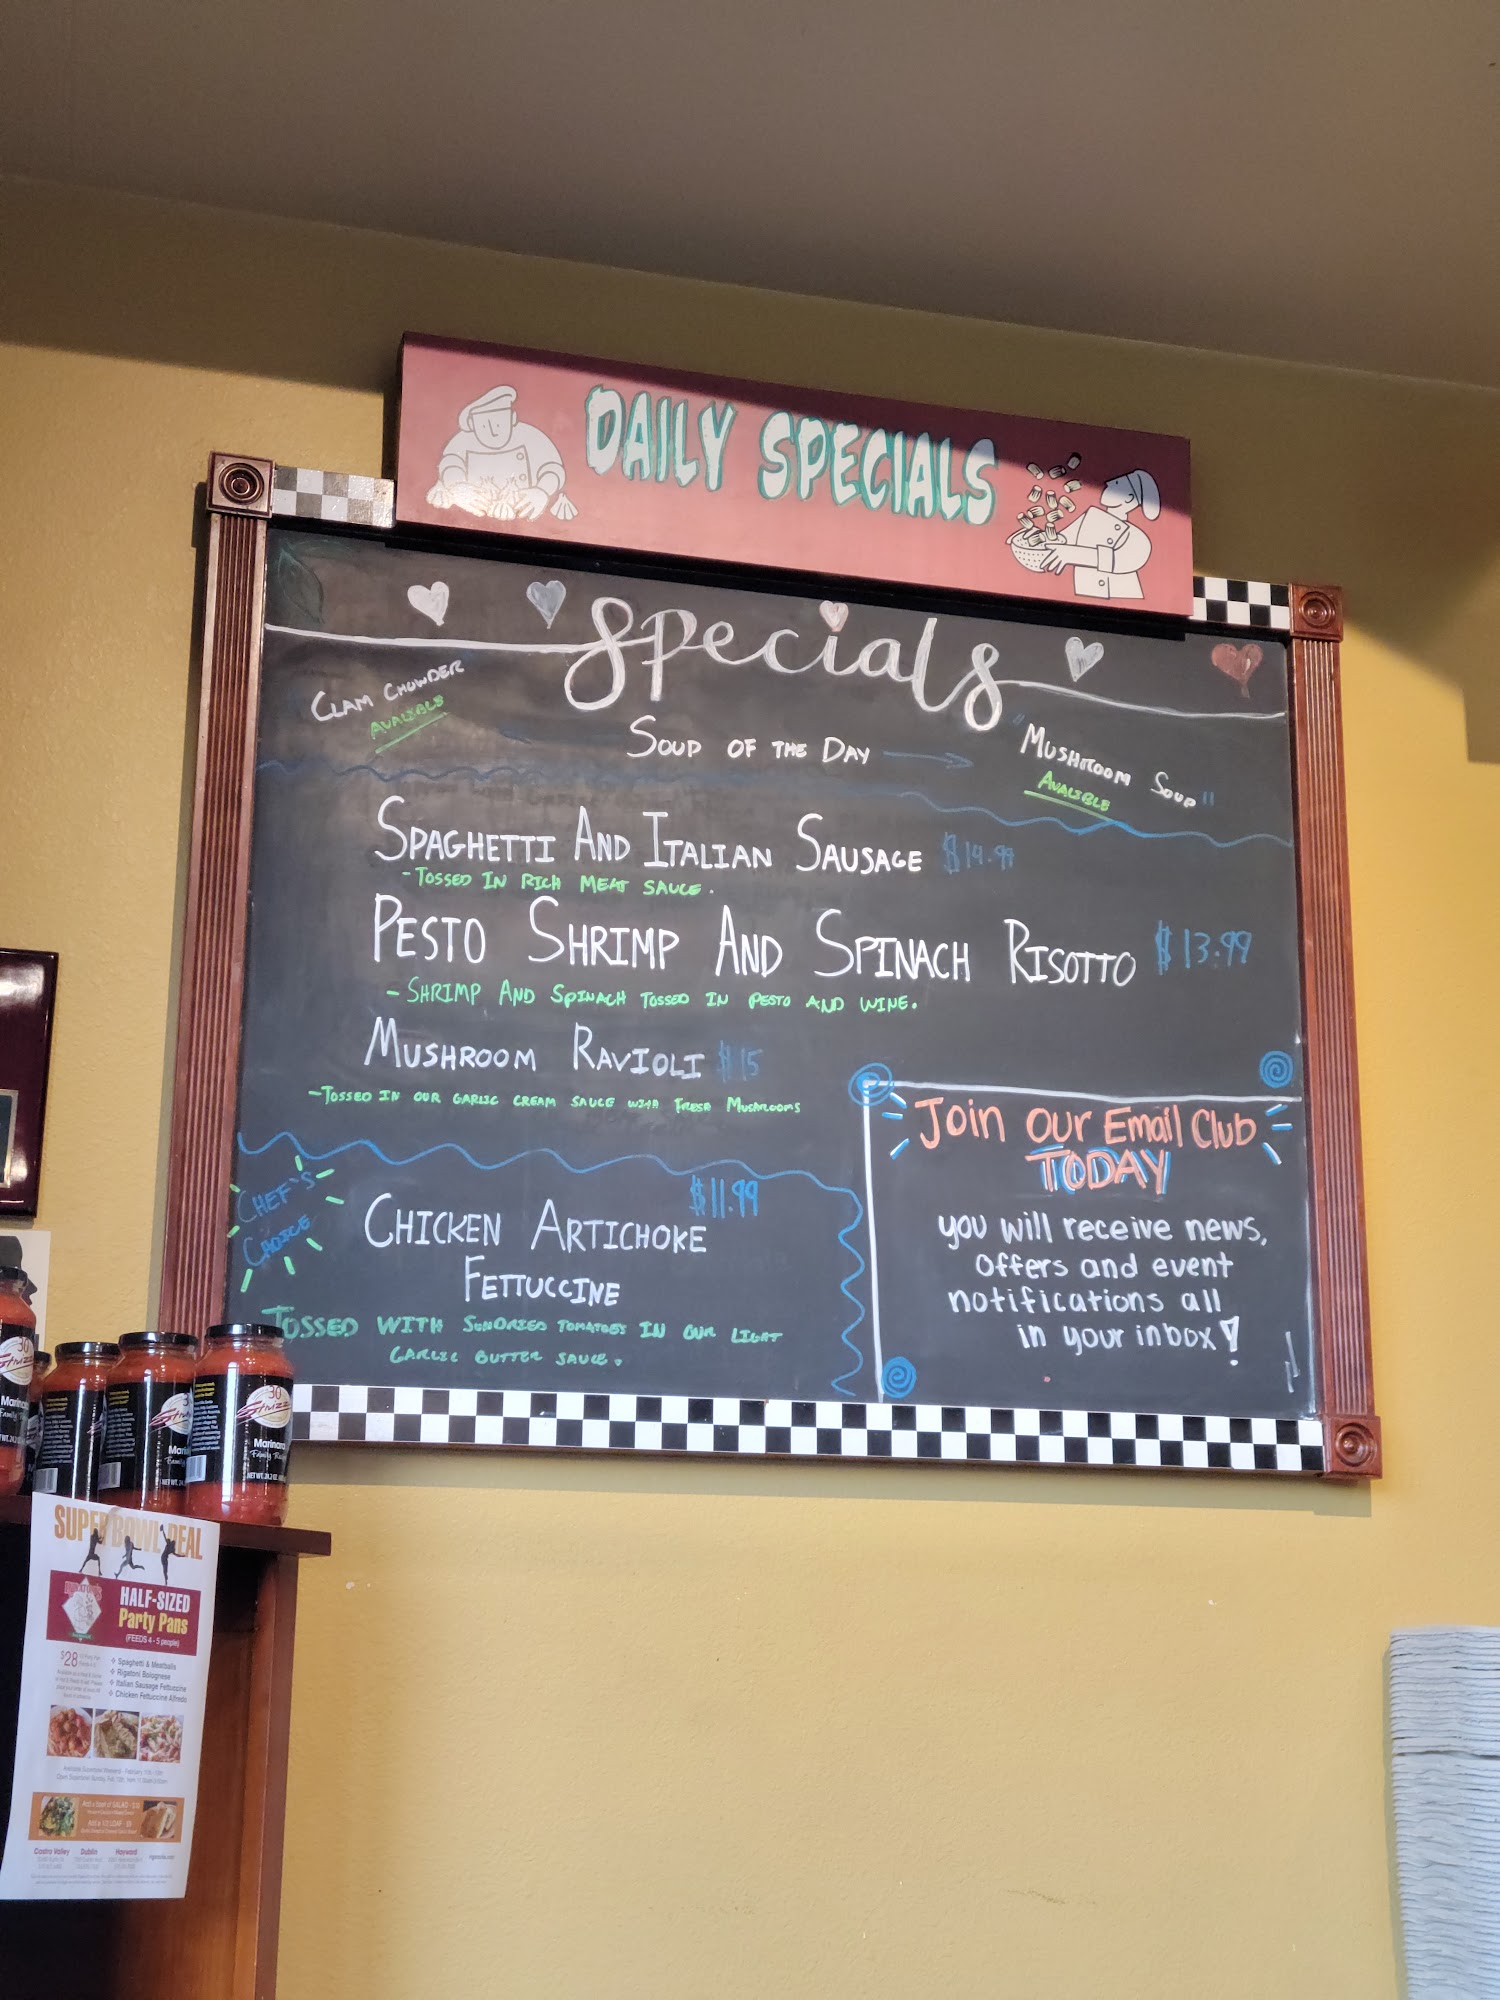 DAILY SPECIALS
Specials
CLAM CHOWDER
AVALIBLE
SOUP OF THE DAY
"MUSHROOM SOUP"
AVALIBLE
SPAGHETTI AND ITALIAN SAUSAGE $14.99
-TOSSED IN RICH MEAT SAUCE.
PESTO SHRIMP AND SPINACH RISOTTO $13.99
-SHRIMP AND SPINACH TOSSED IN PESTO AND WINE.
MUSHROOM RAVIOLI $15
-TOSSED IN OUR GARLIC CREAM SAUCE WITH FRESH MUSHROOMS
CHEF'S
CHOICE
$11.99
CHICKEN ARTICHOKE
FETTUCCINE
TOSSED WITH SUNDRIED TOMATOES IN OUR LIGHT
GARLIC BUTTER SAUCE.
Join our Email Club
TODAY
you will receive news,
offers and event
notifications all
in your inbox!
30
Marinara
SUPERBOWL DEAL
HALF-SIZED
Party Pans
(FEEDS 4 - 5 people)
$28
Spaghetti & Meatballs
Rigatoni Bolognese
Italian Sausage Fettuccine
Chicken Fettuccine Alfredo
Castro Valley Dublin Hayward